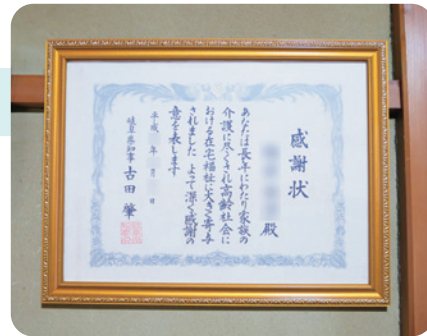 感謝状
殿
あなたは長年にわたり家族の
介護に尽くされ高齢社会に
おける在宅福祉に大きく寄与
されました よって深く感謝の
意を表します
平成 年 月 日
岐阜県知事 古田 肇